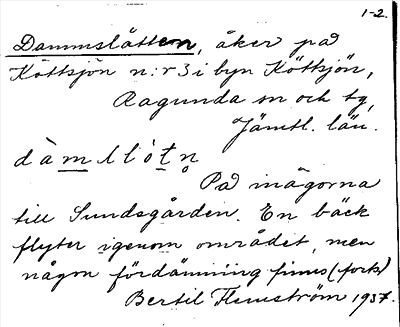 1-2.
Dammslåtten, åker på
Köttsjön n:r 3 i byn Köttsjön,
Ragunda sn och tg,
Jämtl. län.
dàmllótn̥
På inägorna
till Sundsgården. En bäck
flyter igenom området, men
någon fördämning finns (forts)
Bertil Flemström 1937.